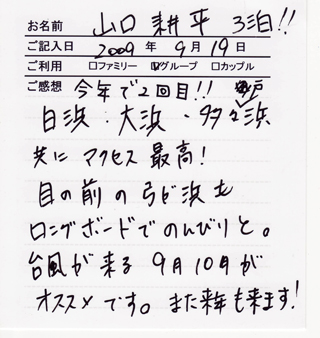 お名前 山口 耕平 3泊!!
ご記入日 2009 年 9 月 19 日
ご利用 □ファミリー ☑グループ □カップル
ご感想 今年で2回目!!
白浜・大浜・多々戸浜
共に アクセス 最高!
目の前の弓ヶ浜も
ロングボードでのんびりと。
台風が来る 9月10月が
オススメです。また来年も来ます!